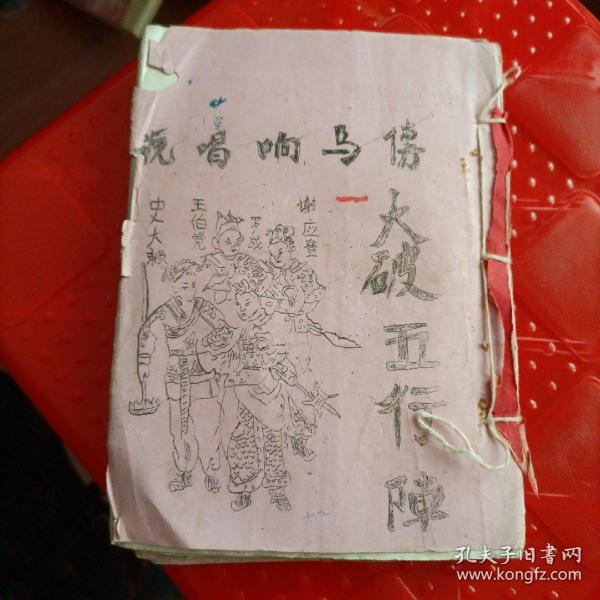 傍马响唱说
大破五行陣
谢应登
罗成
王伯党
史大
孔夫子旧书网
www.kongfz.com